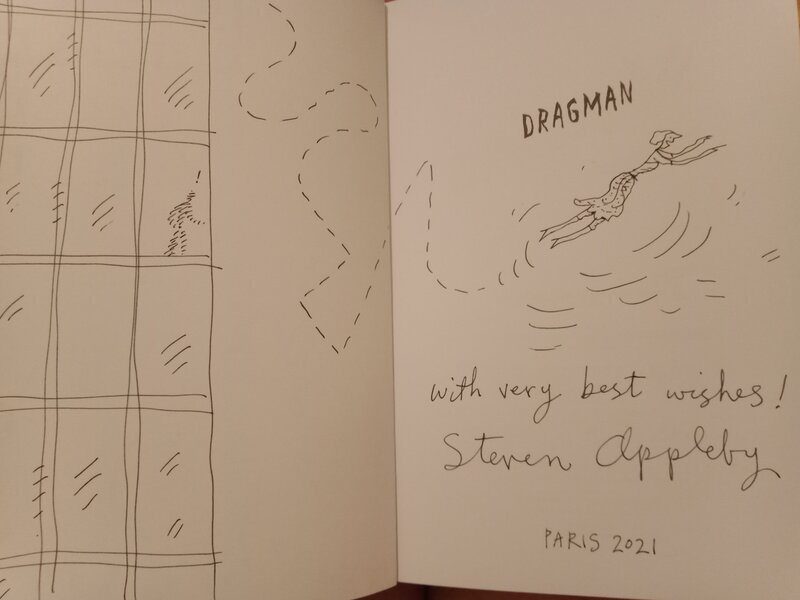 DRAGMAN
with very best wishes!
Steven Appleby
PARIS 2021